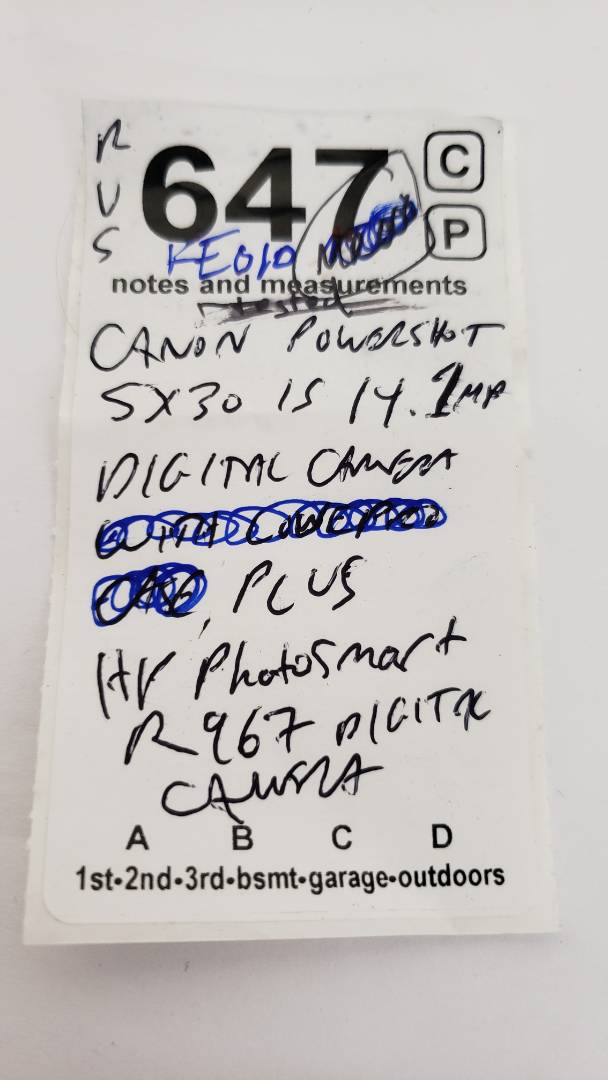 R
U
S
647
C
P
notes and measurements
tested
CANON POWERSHOT
SX30 IS 14.1MP
DIGITAL CAMERA
PLUS
HP PhotoSmart
R967 DIGITAL
CAMERA
A B C D
1st•2nd•3rd•bsmt•garage•outdoors